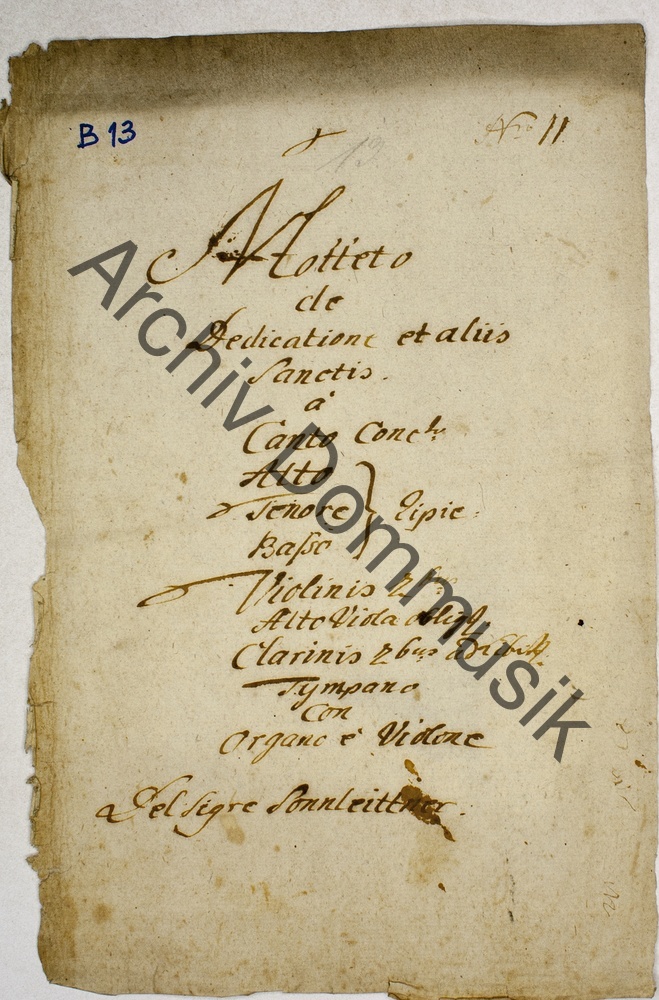 B 13
No 11
13
Motteto
de
Dedicatione et aliis
Sanctis.
à
Canto Conc.to
Alto
Tenore } Ripie:
Basso
Violinis 2bus
Alto Viola oblig
Clarinis 2bus
Tympano
Con
Organo è Violone
Del Sigre Sonnleittner.
Archiv Dommusik